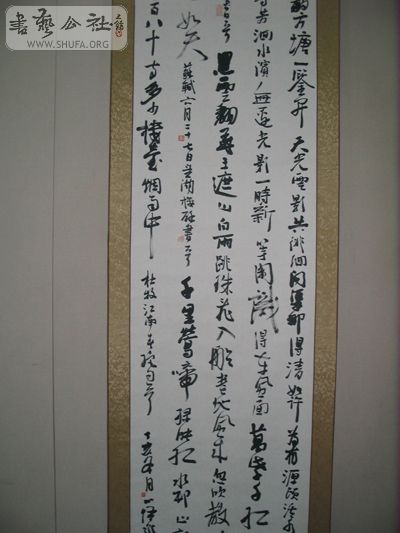 書藝公社
WWW.SHUFA.ORG
方塘一鑒開天光雲影共徘徊問渠那得清如許為有源頭活水
尋芳泗水濱無邊光影一時新等閑識得東風面萬紫千紅
黑雲翻墨未遮山白雨跳珠亂入船卷地風來忽吹散
如天蘇軾六月二十七日望湖樓醉書句千里鶯啼緑映紅水邨山
百八十寺多少樓臺烟雨中杜牧江南春絶句丁亥年月